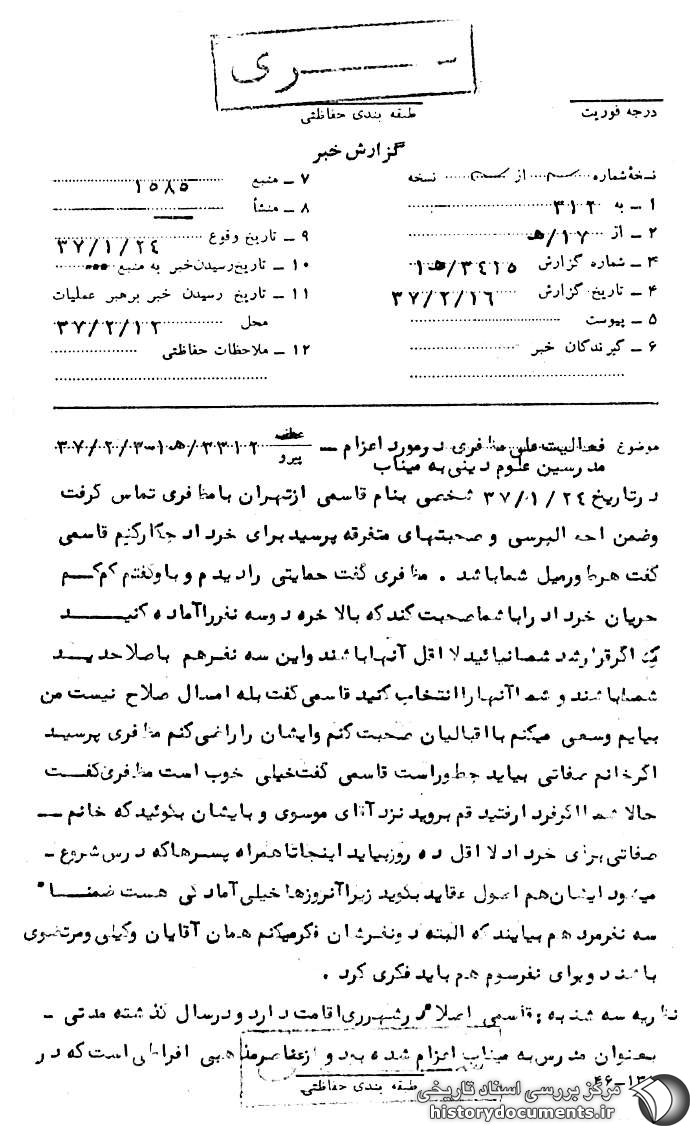 سری
درجه فوریت
طبقه بندی حفاظتی
گزارش خبر
نسخهٔ شماره از نسخه
۱ ـ به ۳۱۲
۲ ـ از ۱۷/هـ
۳ ـ شماره گزارش ۳۴۲۵/هـ۱
۴ ـ تاریخ گزارش ۳۷/۲/۱۶
۵ ـ پیوست
۶ ـ گیرندگان خبر
۷ ـ منبع ۱۵۸۵
۸ ـ منشأ
۹ ـ تاریخ وقوع ۳۷/۱/۲۴
۱۰ ـ تاریخ رسیدن خبر به منبع
۱۱ ـ تاریخ رسیدن خبر برهبر عملیات
محل ۳۷/۲/۱۲
۱۲ ـ ملاحظات حفاظتی
موضوع فعالیت علی مظافری در مورد اعزام ـ عطف پیرو ۳۳۱۲/هـ۱-۳۷/۲/۳
مدرسین علوم دینی به میناب
در تاریخ ۳۷/۱/۲۴ شخصی بنام قاسمی از تهران با مظافری تماس گرفت
وضمن احوالپرسی و صحبتهای متفرقه پرسید برای خرداد چکار کنیم قاسمی
گفت هرطور میل شما باشد . مظافری گفت حمایتی را دیدم و باو گفتم کم کم
جریان خرداد را با شما صحبت کند که بالاخره دو سه نفر را آماده کنید
که اگر قرار شد شما نیائید لااقل آنها باشند واین سه نفر هم با صلاحدید
شما باشند و شما آنها را انتخاب کنید قاسمی گفت بله امسال صلاح نیست من
بیایم وسعی میکنم با اقبالیان صحبت کنم وایشان را راضی کنم مظافری پرسید
اگر خانم صفاتی بیاید چطور است قاسمی گفت خیلی خوب است مظافری گفت
حالا شما اگر فردا رفتید قم بروید نزد آقای موسوی و بایشان بگوئید که خانم ـ
صفاتی برای خرداد لااقل ده روز بیاید اینجا تا همراه پسرها که درس شروع ـ
میشود ایشان هم اصول عقاید بگوید زیرا آنروزها خیلی آمادگی هست ضمناً
سه نفر مرد هم بیایند که البته دو نفرشان فکر میکنم همان آقایان وکیلی ومرتضوی
باشند و برای نفر سوم هم باید فکری کرد .
نظریه سه شنبه : قاسمی اصلا در شهرری اقامت دارد و در سال گذشته مدتی ـ
بعنوان مدرس به میناب اعزام شده بود و از عناصر مذهبی افراطی است که در
طبقه بندی حفاظتی
مرکز بررسی اسناد تاریخی
historydocuments.ir